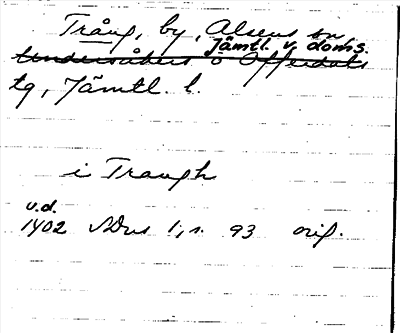 Trång, by, Alsens sn
Jämtl. v. doms.
Undersåkers o Offerdals
tg, Jämtl. l.
i Traugh
u.d.
1402 NDns 1, s. 93 orig.